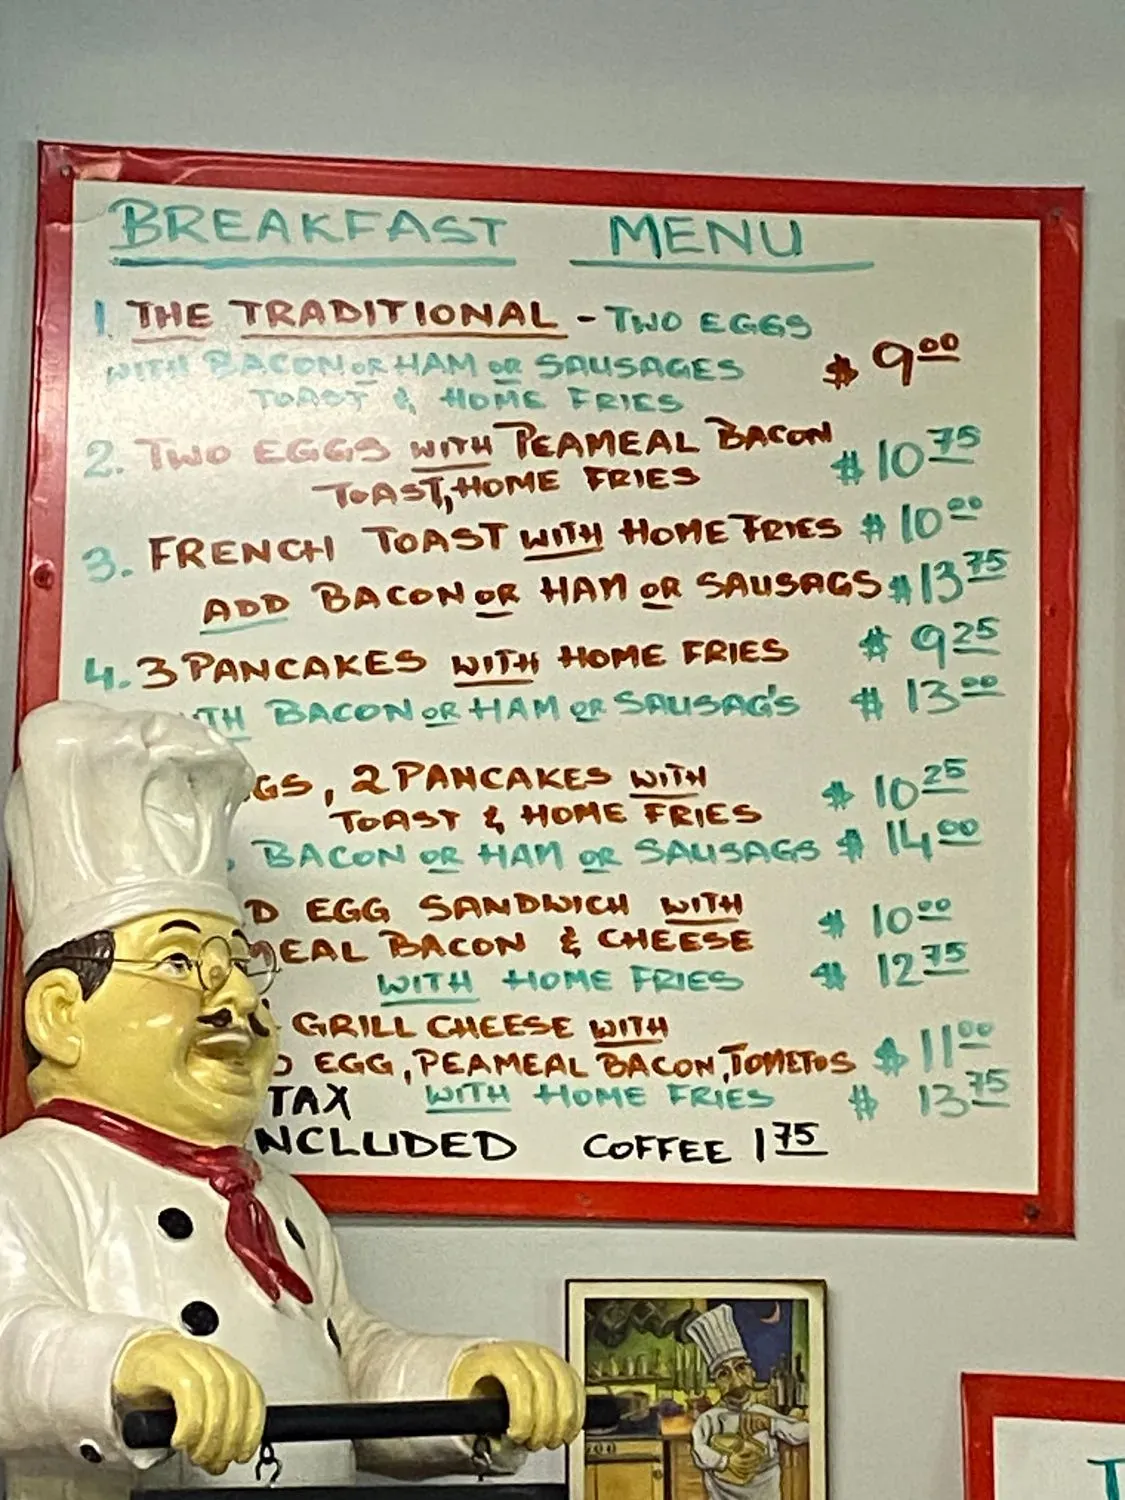 BREAKFAST MENU
1. THE TRADITIONAL - TWO EGGS
WITH BACON OR HAM OR SAUSAGES $ 9.00
TOAST & HOME FRIES
2. TWO EGGS WITH PEAMEAL BACON $ 10.75
TOAST, HOME FRIES
3. FRENCH TOAST WITH HOME FRIES $ 10.00
ADD BACON OR HAM OR SAUSAGS $ 13.75
4. 3 PANCAKES WITH HOME FRIES $ 9.25
TH BACON OR HAM OR SAUSAG'S $ 13.00
GS, 2 PANCAKES WITH $ 10.25
TOAST & HOME FRIES
BACON OR HAM OR SAUSAGS $ 14.00
D EGG SANDWICH WITH $ 10.00
MEAL BACON & CHEESE
WITH HOME FRIES $ 12.75
GRILL CHEESE WITH $ 11.00
D EGG, PEAMEAL BACON, TOMETOS
TAX WITH HOME FRIES $ 13.75
NCLUDED COFFEE 1.75